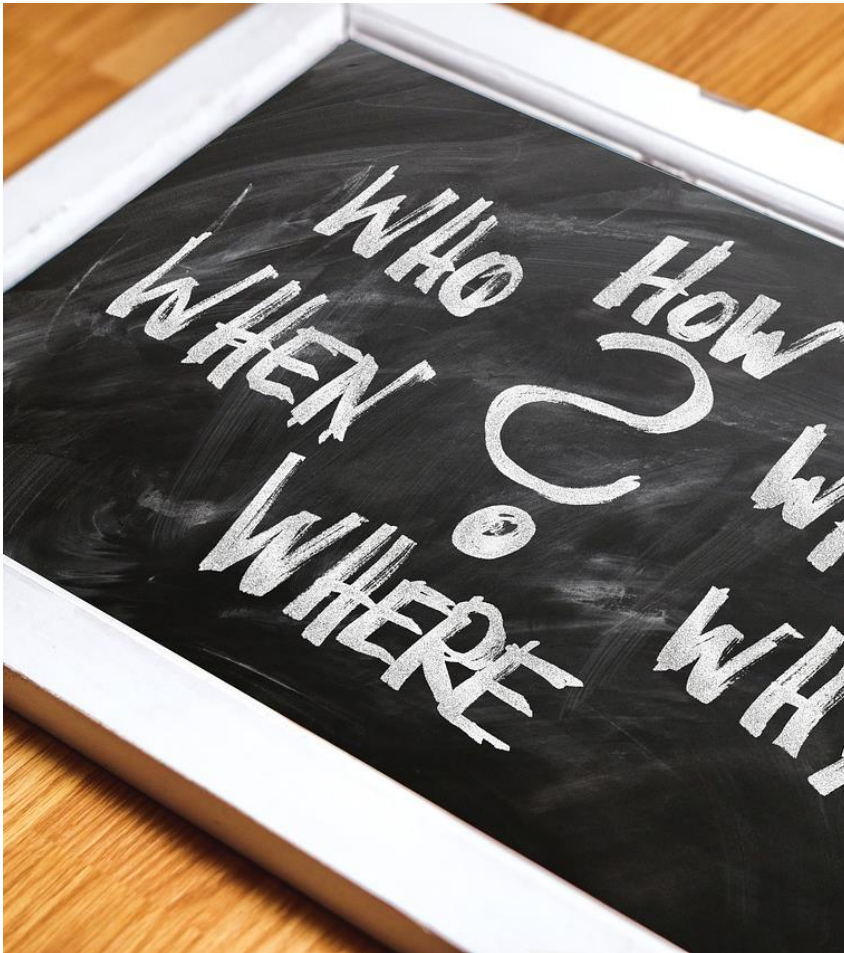 WHO
HOW
WHEN
?
WHERE
WHY